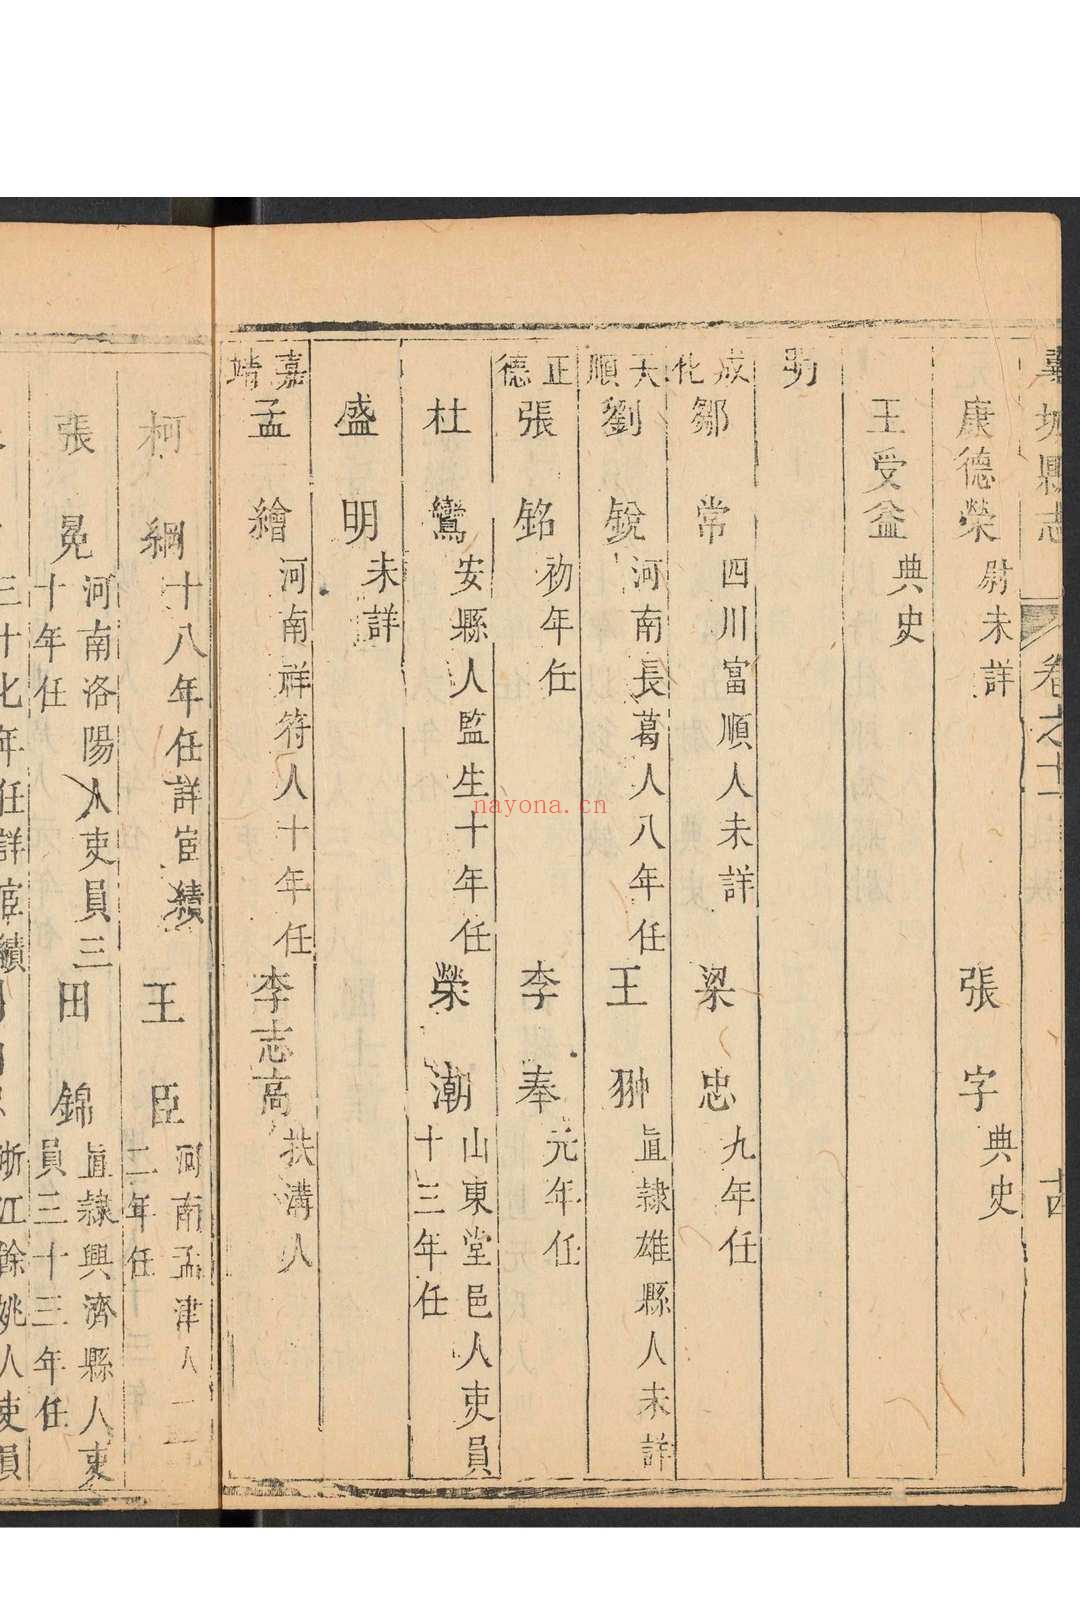 城縣志 卷之十 十四
康德榮 尉未詳 張字 典史
王受益 典史
明
成化 鄒常 四川富順人未詳 梁忠 九年任
天順 劉銳 河南長葛人八年任 王翀 直隷雄縣人未詳
正德 張銘 初年任 李奉 元年任
杜鸞 安縣人監生十年任 榮潮 山東堂邑人吏員十三年任
盛明 未詳
嘉靖 孟繪 河南祥符人十年任 李志高 扶溝人
柯綱 十八年任詳宦績 王臣 河南孟津人二十二年任
張冕 河南洛陽人吏員三十年任 田錦 直隷興濟縣人吏員三十三年任
三十七年任詳宦績 浙江餘姚人吏員
nayona.cn